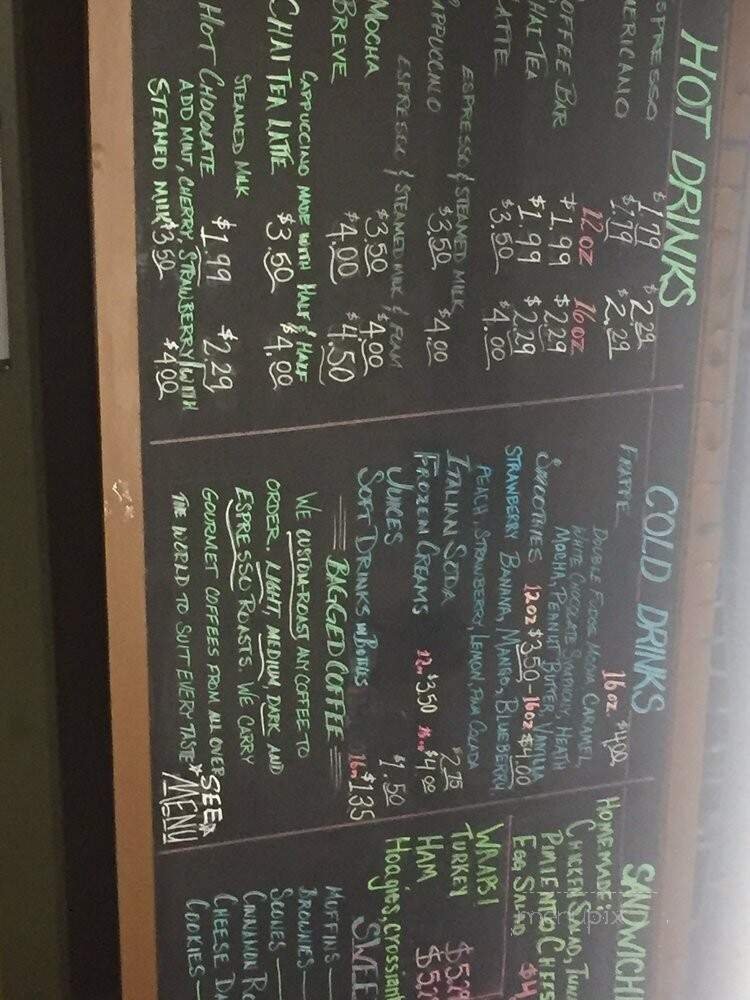 HOT DRINKS
$1.79 $2.29
$1.79 $2.29
12 oz 16 oz
COFFEE BAR $1.99 $2.29
CHAI TEA $1.99 $2.29
LATTE $3.50 $4.00
ESPRESSO & STEAMED MILK
CAPPUCCINO $3.50 $4.00
ESPRESSO & STEAMED MILK & FOAM
MOCHA $3.50 $4.00
BREVE $4.00 $4.50
CAPPUCCINO MADE WITH HALF & HALF
CHAI TEA LATTE $3.50 $4.00
STEAMED MILK
HOT CHOCOLATE $1.99 $2.29
ADD MINT, CHERRY, STRAWBERRY WITH
STEAMED MILK $3.50 $4.00
COLD DRINKS
FRAPPE 16 oz. $4.00
DOUBLE FUDGE MOCHA, CARAMEL
WHITE CHOCOLATE SYMPHONY, HEATH
MOCHA, PEANUT BUTTER, VANILLA
SMOOTHIES 12 oz $3.50 - 16 oz $4.00
STRAWBERRY BANANA, MANGO, BLUEBERRY
PEACH, STRAWBERRY, LEMON, PINA COLADA
ITALIAN SODA $2.75
FROZEN CREAMS 12oz $3.50 $4.00
JUICES $1.50
SOFT DRINKS IN BOTTLES $1.35
BAGGED COFFEE
WE CUSTOM-ROAST ANY COFFEE TO
ORDER. LIGHT, MEDIUM, DARK AND
ESPRESSO ROASTS. WE CARRY
GOURMET COFFEES FROM ALL OVER
THE WORLD TO SUIT EVERY TASTE
*SEE*
MENU
SANDWICH
HOMEMADE:
CHICKEN SALAD, TUN
PIMIENTO CHEES
EGG SALAD $4
WRAPS/
TURKEY $5.29
HAM $5.2
Hoagies, Crossiant
SWEE
MUFFINS
BROWNIES
SCONES
CINNIMON RO
CHEESE DA
COOKIES
menupix